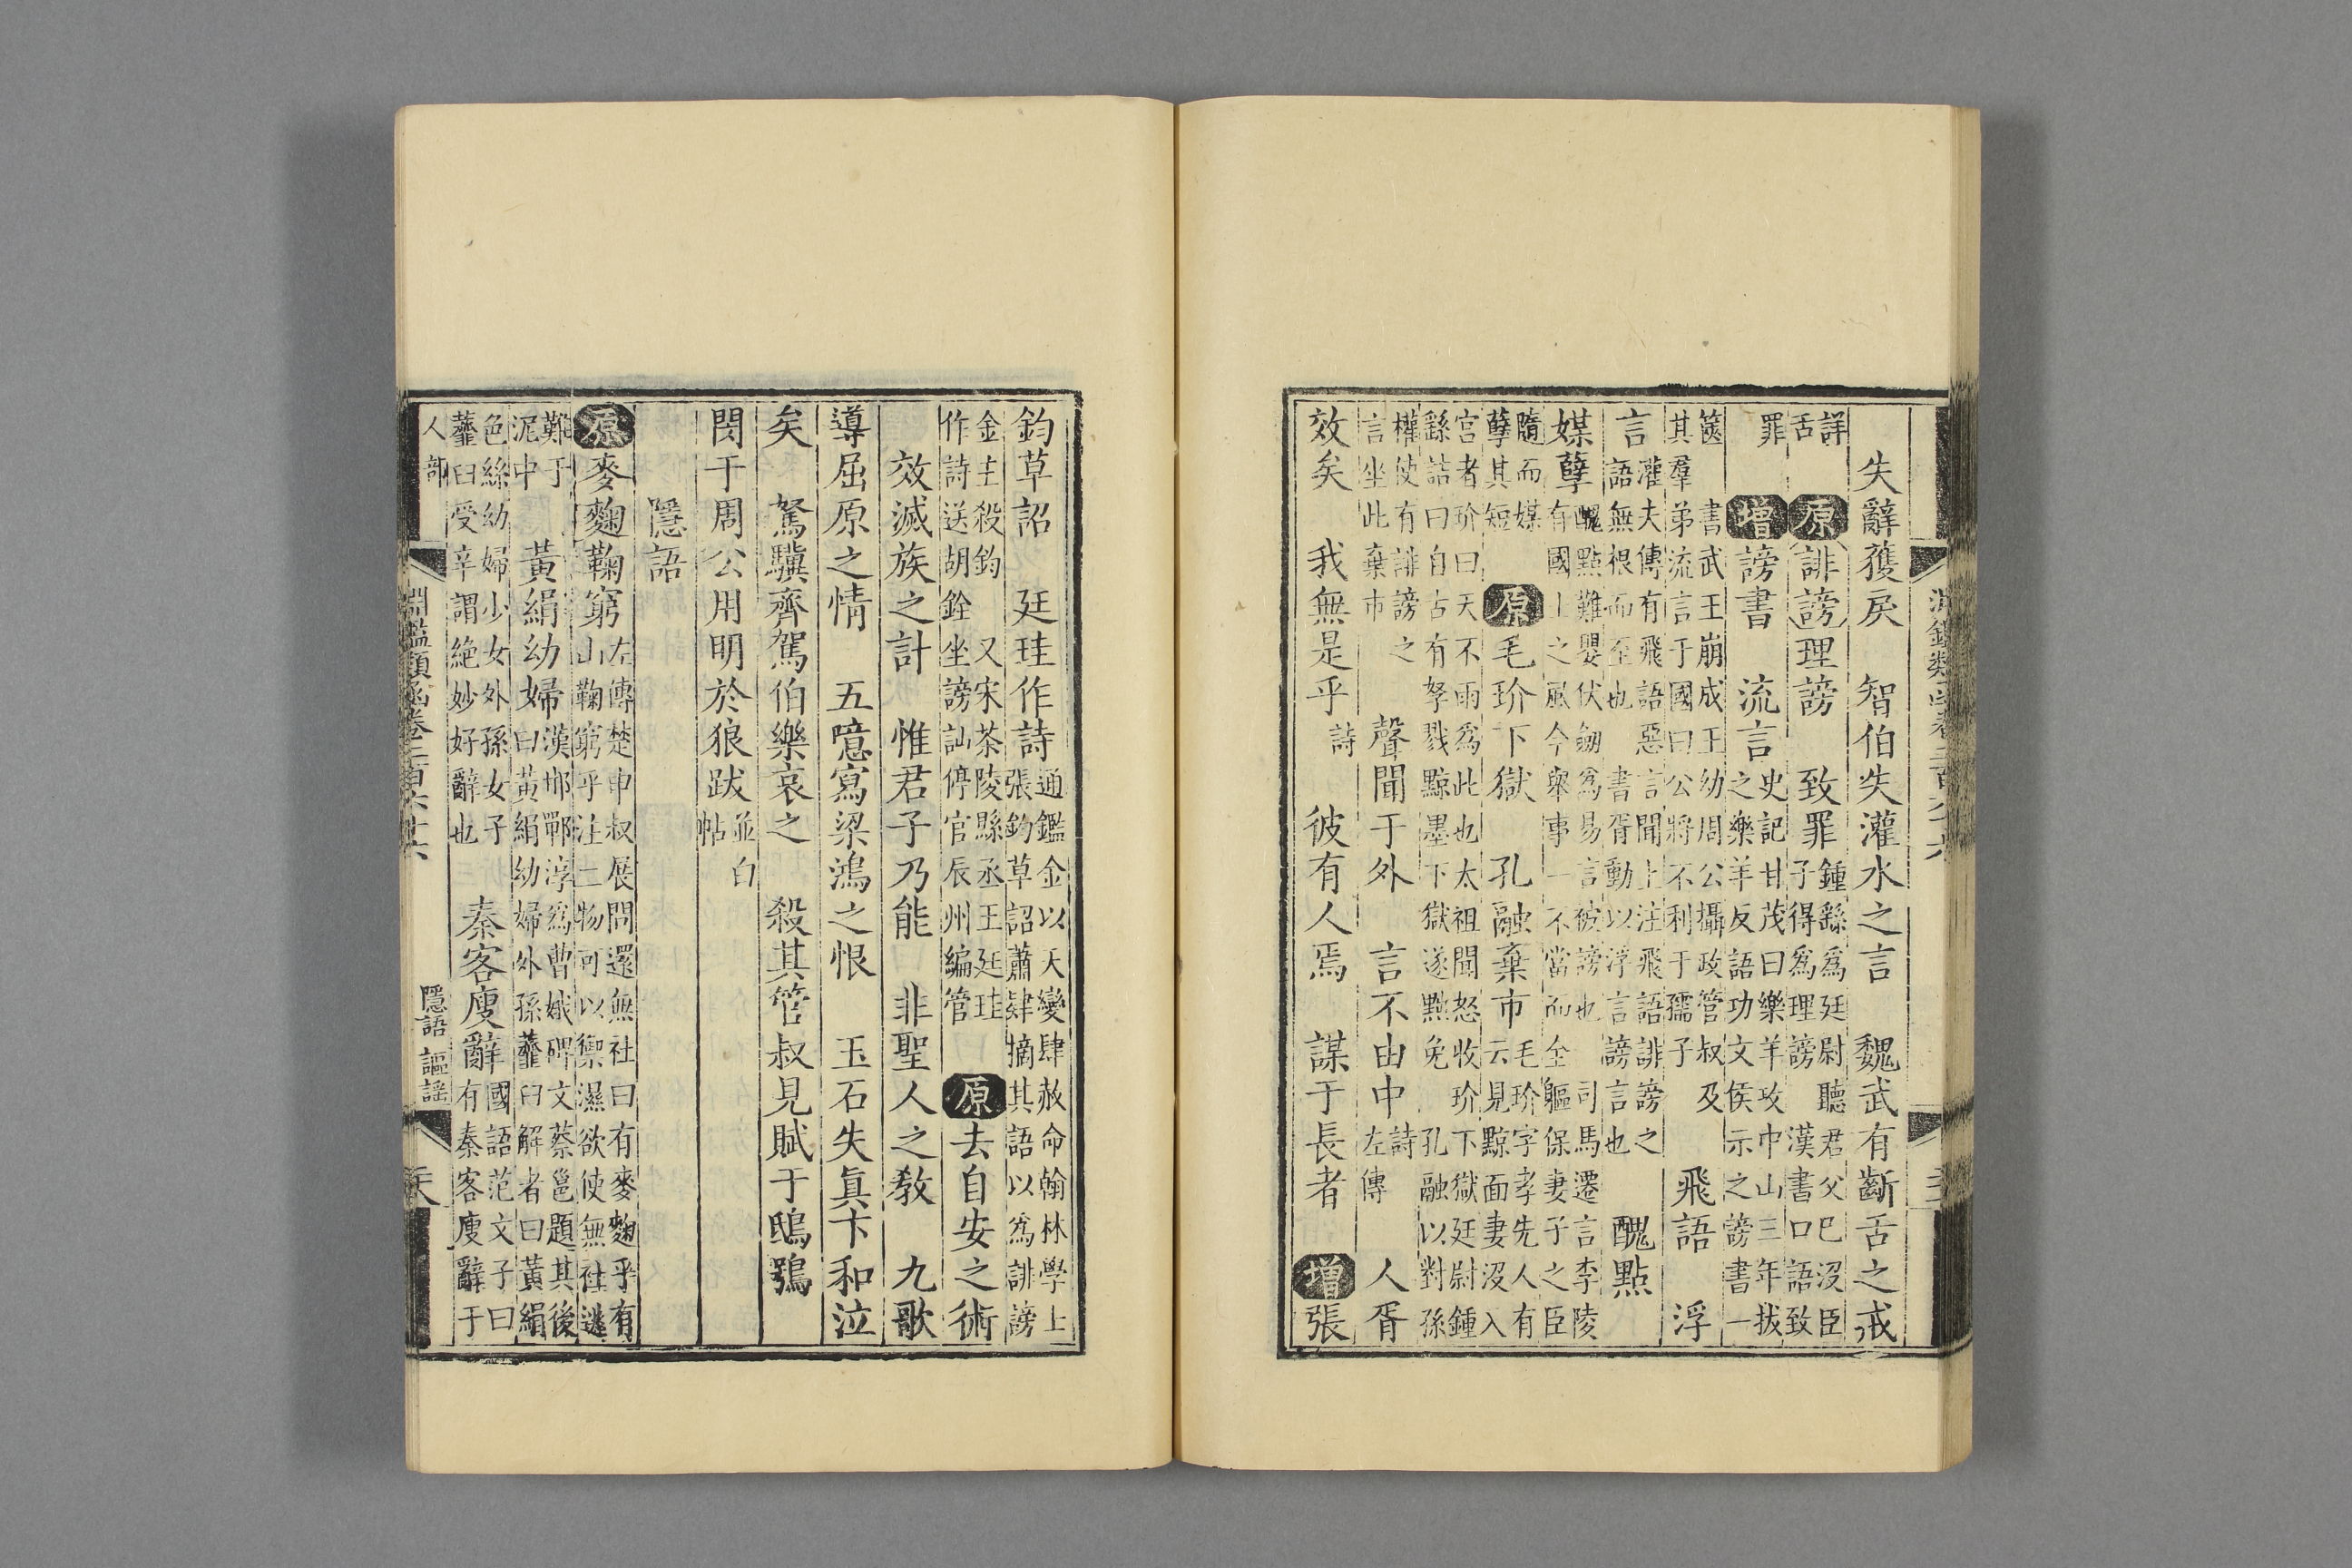 失辭獲戾　智伯失灌水之言　魏武有斷舌之戒
詳舌　原誹謗理謗　致罪鍾繇爲廷尉聽君父巳沒臣子得爲理謗　漢書口語致
罪　增謗書　流言史記甘茂曰樂羊攻中山三年拔之樂羊反語功文侯示之謗書一
篋　書武王崩成王幼周公攝政管叔及其羣弟流言于國曰公將不利于孺子　飛語　浮
言灌夫傳有飛語惡言聞上注飛語誹謗之語無根而至也　書胥動以浮言謗言也　醜點
媒孽醜點難嬰伏劒爲易言被謗也　司馬遷言李陵有國士之風今舉事一不當而全軀保妻子之臣
隨而媒孽其短　原毛玠下獄　孔融棄市毛玠字孝先人有云見黥面妻沒入
宮者玠曰天不雨爲此也太祖聞怒收玠下獄廷尉鍾繇詰曰自古有孥戮黥墨下獄遂黜免　孔融以對孫
權使有誹謗之言坐此棄市　聲聞于外　言不由中詩左傳　人胥
效矣　我無是乎詩　彼有人焉　謀于長者　增張
鈞草詔　廷珪作詩通鑑金以天變肆赦命翰林學士張鈞草詔蕭肄摘其語以爲誹謗
金主殺鈞　又宋茶陵縣丞王廷珪作詩送胡銓坐謗訕停官辰州編管　原去自安之術
效滅族之計　惟君子乃能　非聖人之敎　九歌
導屈原之情　五噫寫梁鴻之恨　玉石失眞卞和泣
矣　駑驥齊駕伯樂哀之　殺其管叔見賦于鴟鴞
閔于周公用明於狼跋並白帖
隱語
原麥麴鞠窮左傳楚申叔展問還無社曰有麥麴乎有山鞠窮乎注二物可以禦濕欲使無社逃
難于泥中　黃絹幼婦漢邯鄲淳爲曹娥碑文蔡邕題其後曰黃絹幼婦外孫虀臼解者曰黃絹
色絲幼婦少女外孫女子虀臼受辛謂絕妙好辭也　秦客廋辭國語范文子曰有秦客廋辭于
人部　隱語　謳謠
淵鑑類函卷三百六十六